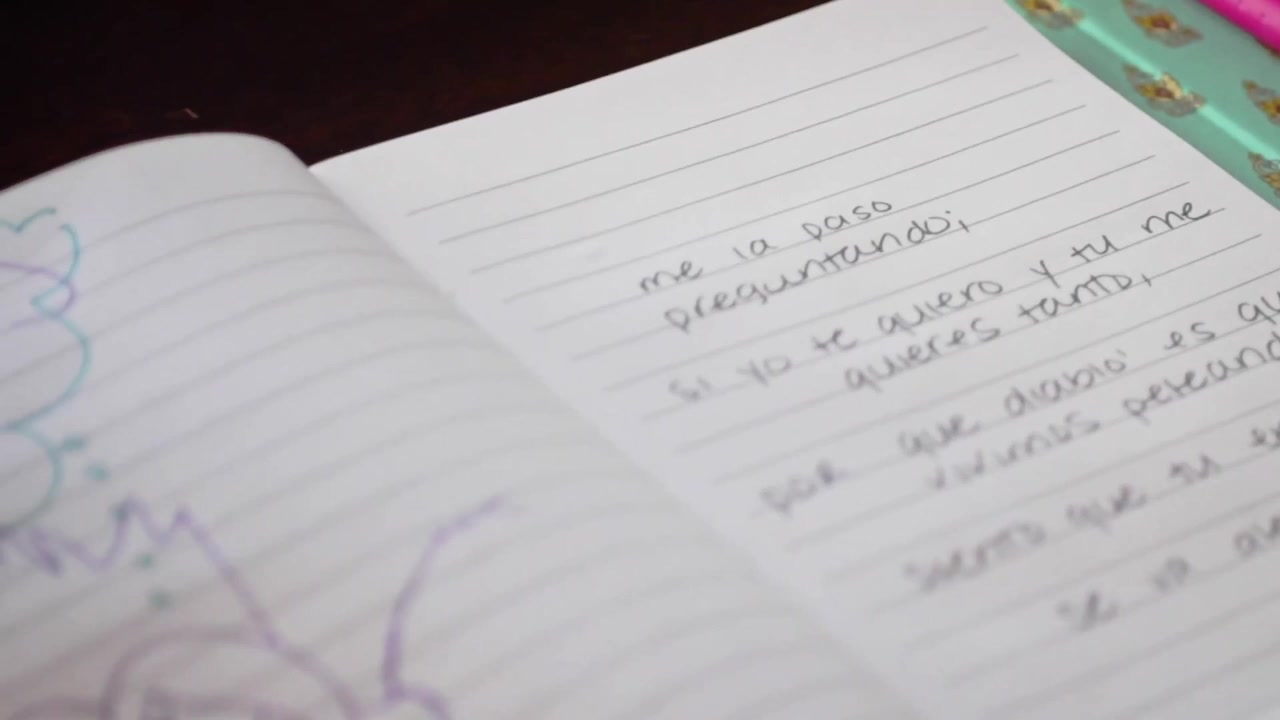 me la paso
preguntando;
si yo te quiero y tu me
quieres tanto,
por que diablo' es
vivimos
siento que tu
se va